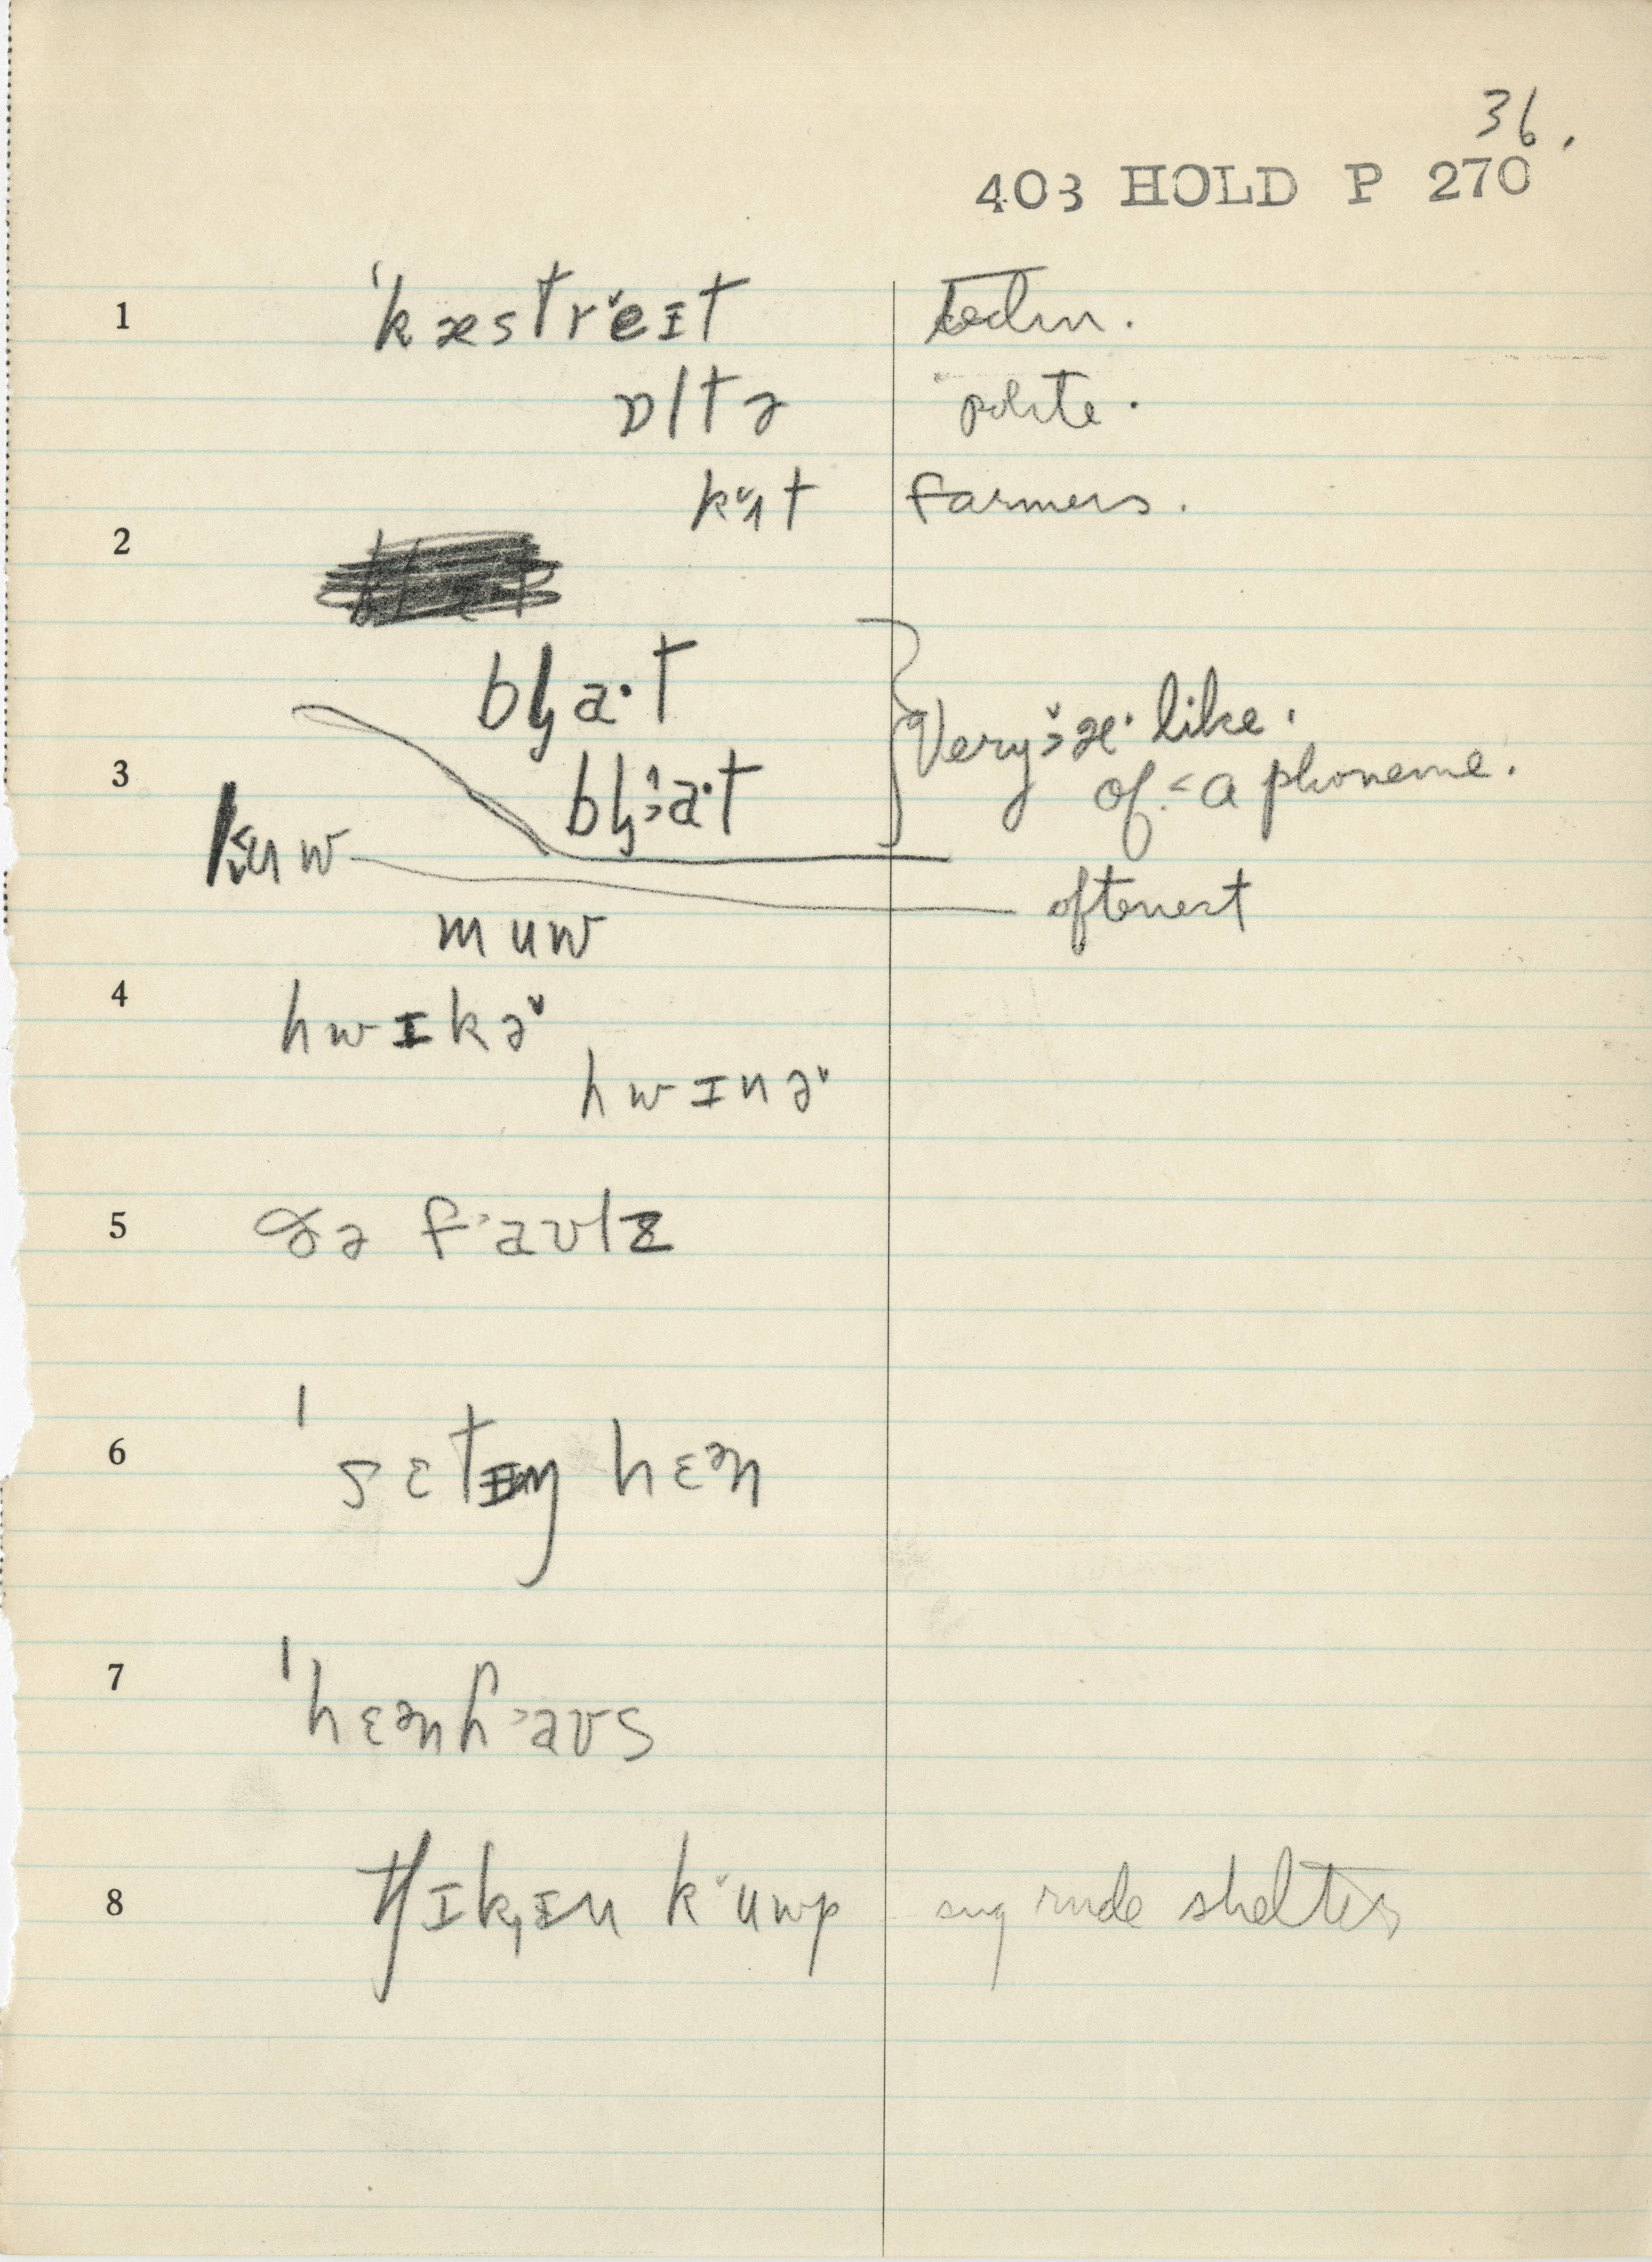 36.
403 HOLD P 270
1 ˈkæstrɐ̌eɪt techn.
ɒltɚ polite.
kʌ̌t farmers.
2
bl̡a·t
Very ˃̌æ· like.
3 bl̡˃̂a·t of ˂a phoneme.
oftenest
muw
4 hwɪkɚ̌
hwɪnɚ̌
5 ðə f˃aʊlz
6 ˈsɛtɪŋ hɛᵊn
7 ˈhɛᵊnh˃aʊs
8 tʃɪk̟ɪn k̆uwp any rude shelter